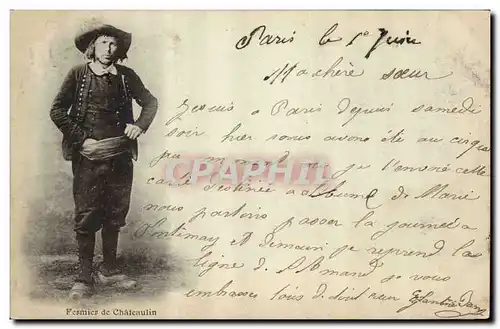 Paris le 1er Juin
Ma chère sœur
Je suis a Paris depuis samedi
soir hier nous avons été au cirque
je t'envoie cette
CPARAMA
carte destinée a l'album de Marie
nous partons passer la journée a
Pontimay et demain je reprend la
ligne de St Amand je vous
embrasse tous
Fermier de Châteaulin